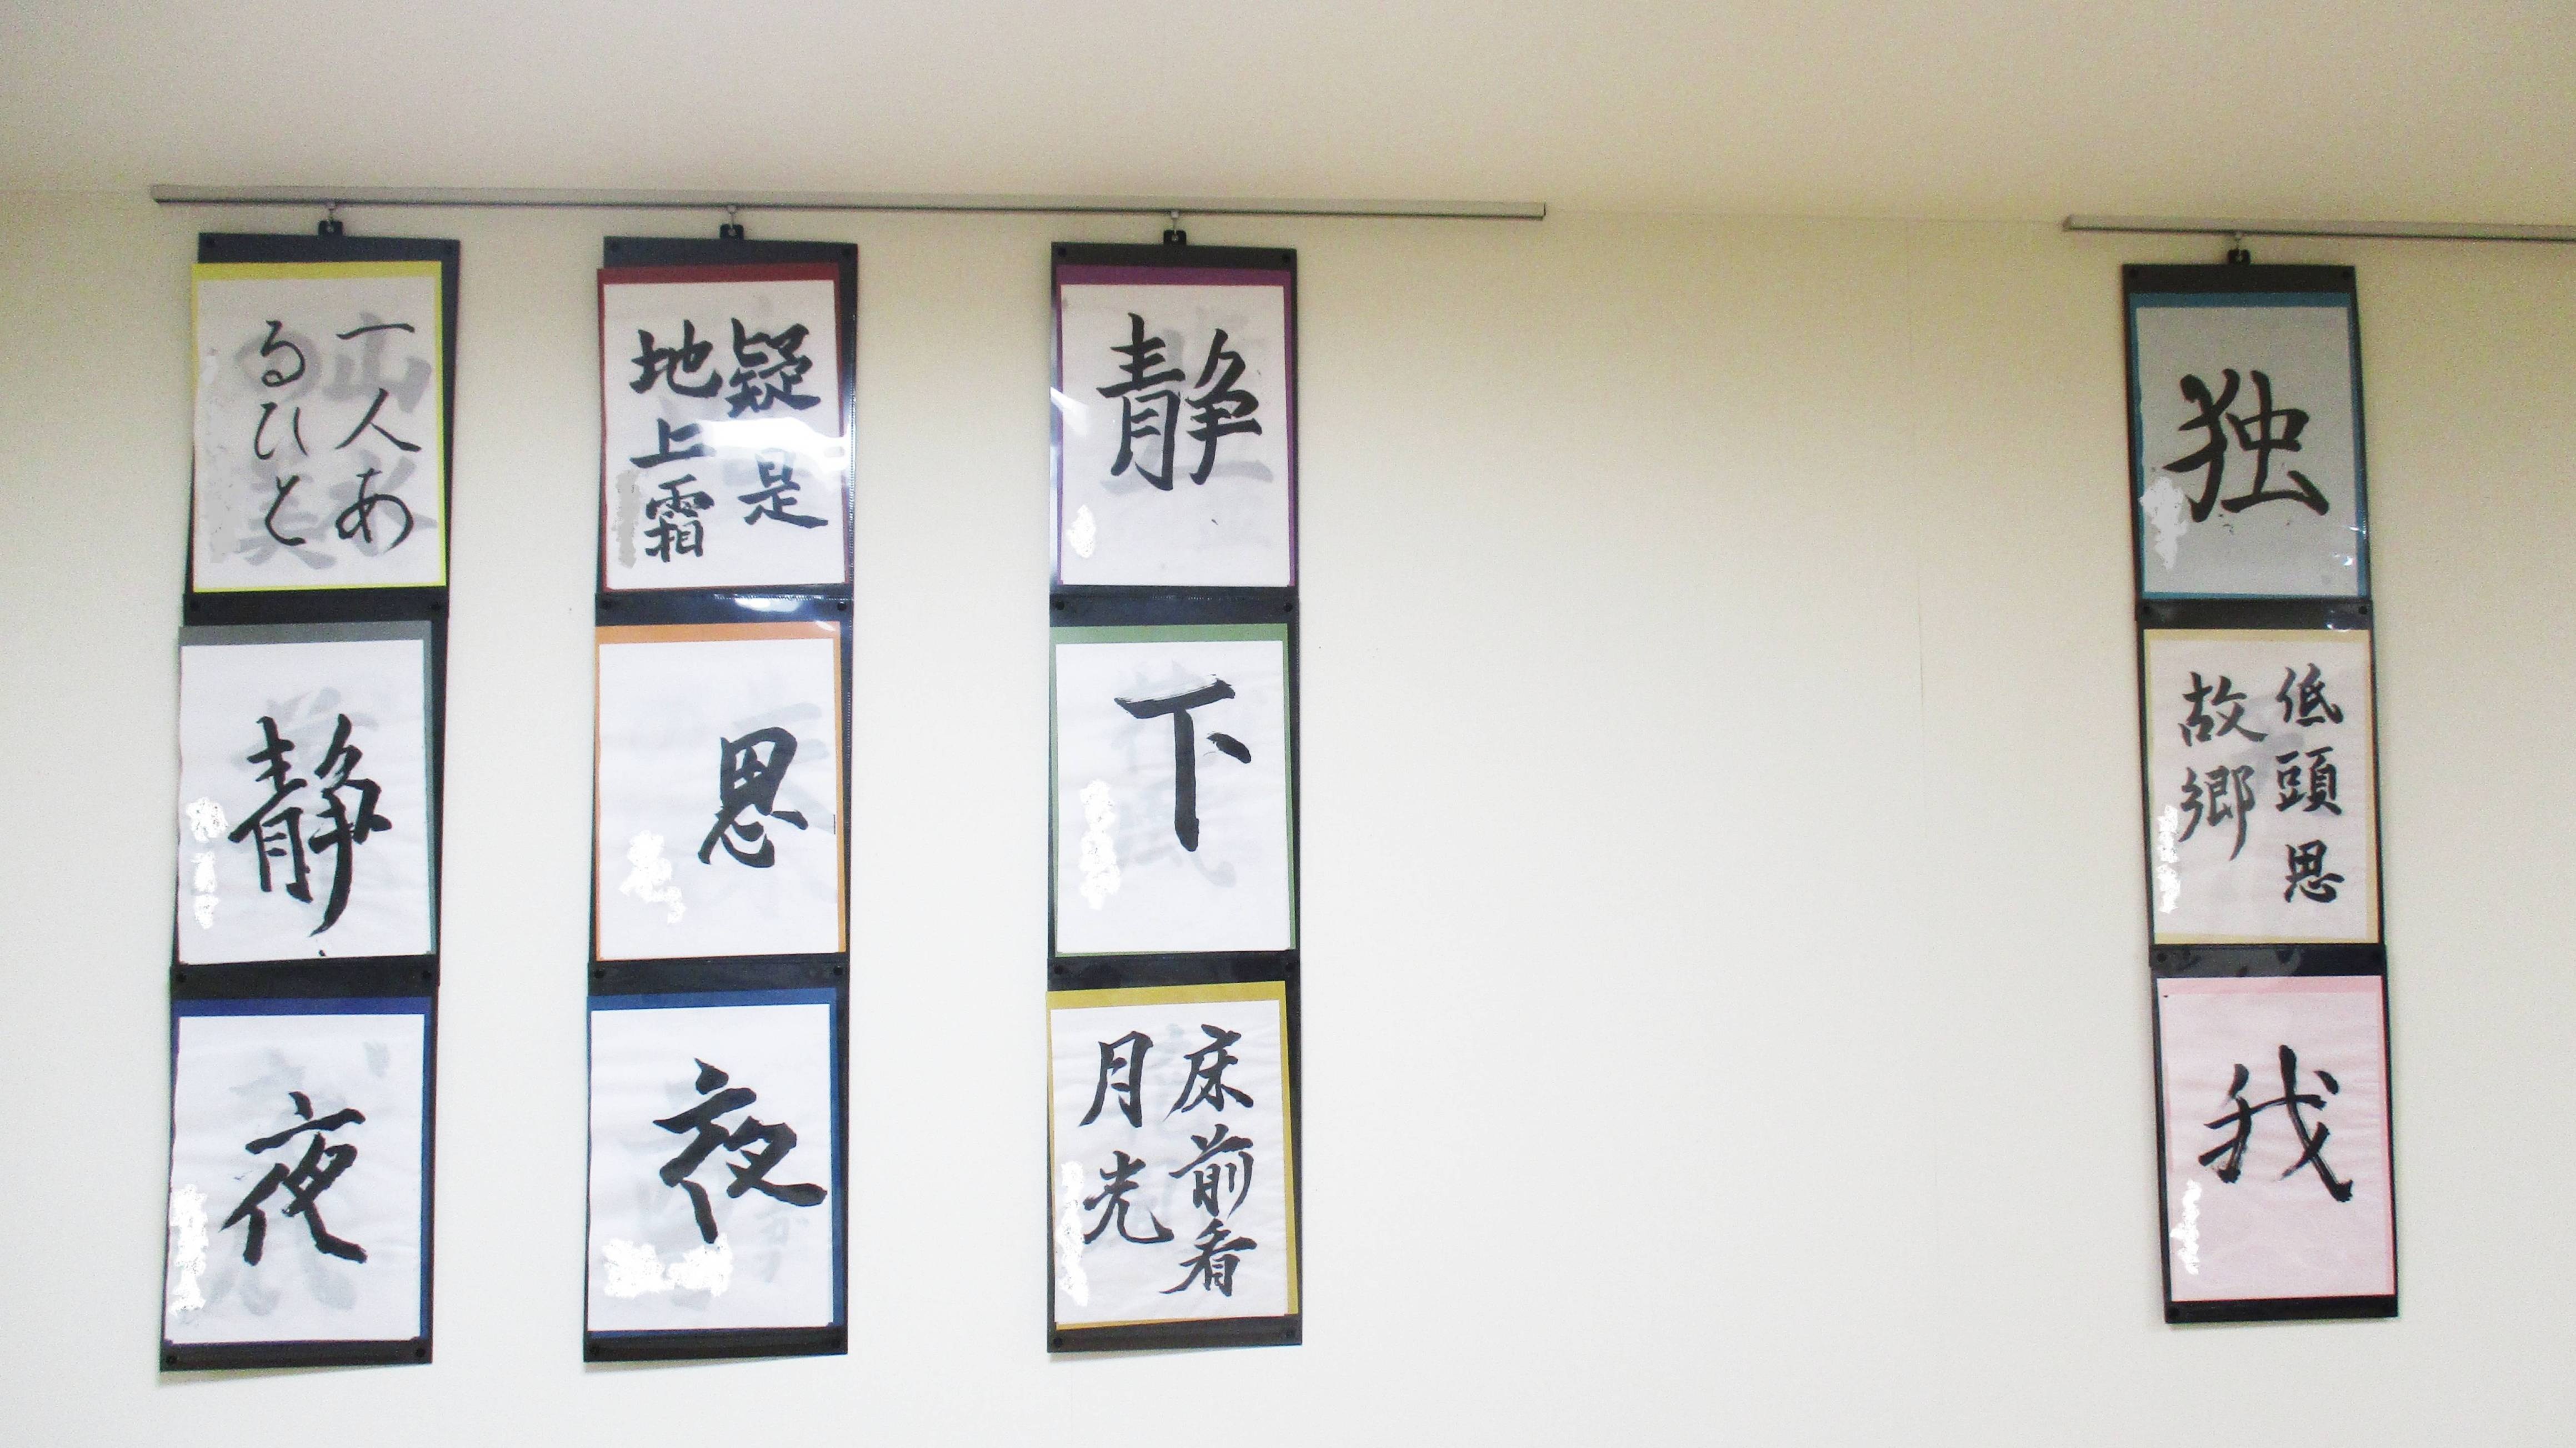 一人あ
るひと
静
夜
疑是
地上霜
思
夜
静
下
床前看
月光
独
低頭思
故郷
我